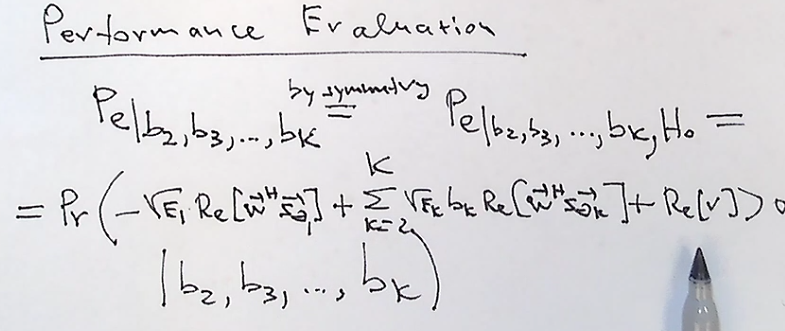 Performance Evaluation
Pe|b₂,b₃,...,bK by symmetry = Pe|b₂,b₃,...,bK,H₀ =
= Pr(-√E₁ Re[w⃗ᴴs⃗∂₁] + Σ_{k=2}^{K} √Eₖ bₖ Re[w⃗ᴴs⃗∂ₖ] + Re[v]) > 0
| b₂, b₃, ..., bK)